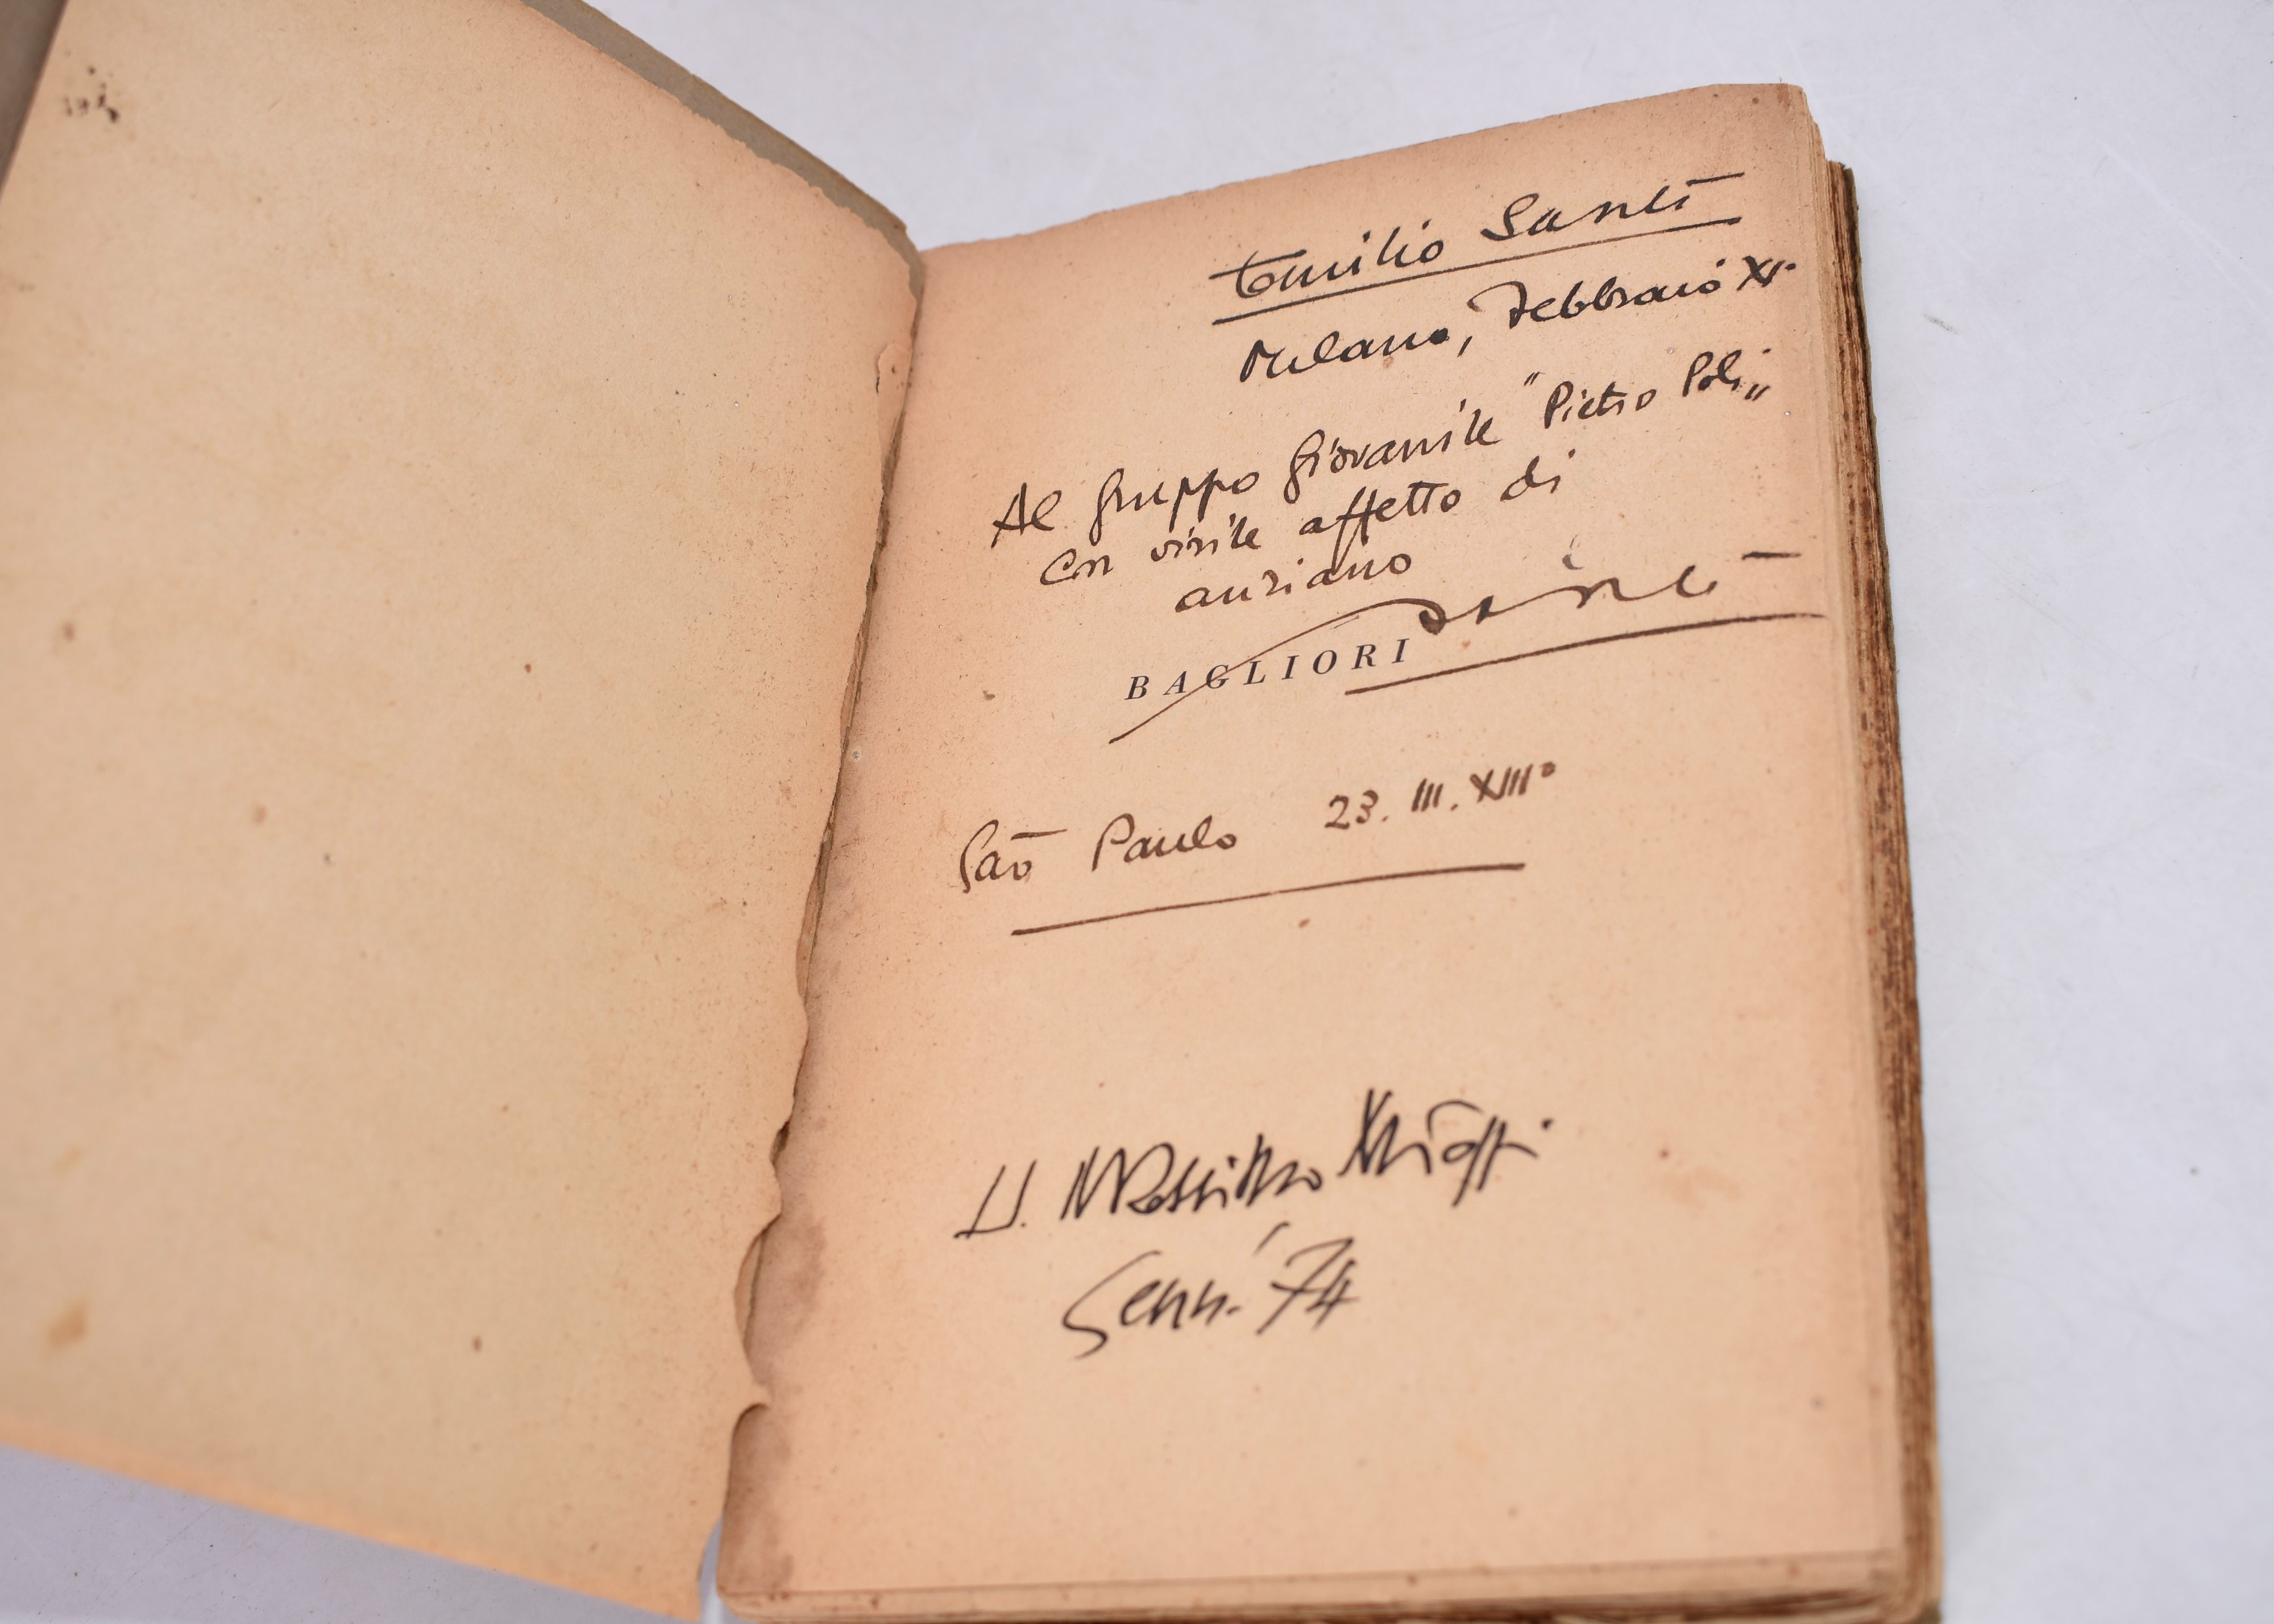 Emilio Santi
Milano, Febbraio XI°
Al Gruppo Giovanile "Pietro Poli„
con virile affetto di
anziano
Santi
BAGLIORI
Saō Paulo 23. III. XIII°
Genn. '74